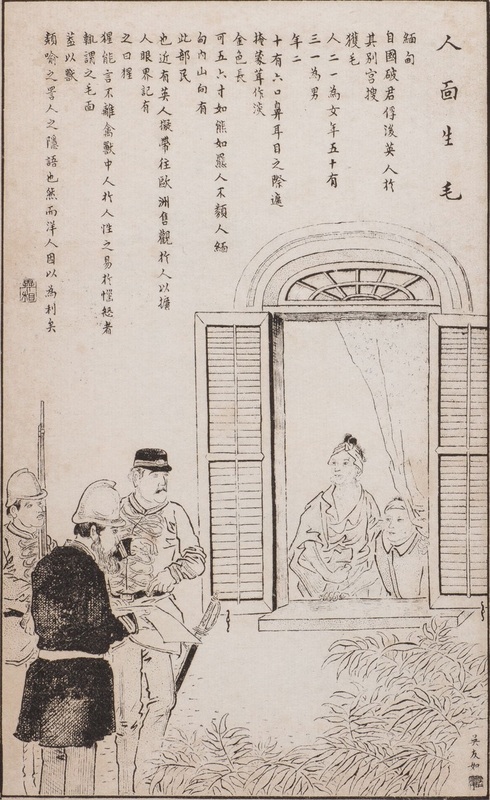 人面生毛
緬甸
自國破君俘後英人於
其別宮搜
獲毛
人二一為女年五十有
三一為男
年二
十有六口鼻耳目之際遍
掩蒙茸作淡
金色長
可五六寸如熊如羆人不類人緬
甸內山向有
此部民
也近有英人擬帶往歐洲售觀於人以擴
人眼界記有
之曰猩
猩能言不離禽獸中人於人性之易於怒者
孰謂之毛面
蓋以獸
類喻之詈人之隱語也然而洋人因以為利矣
吳友如